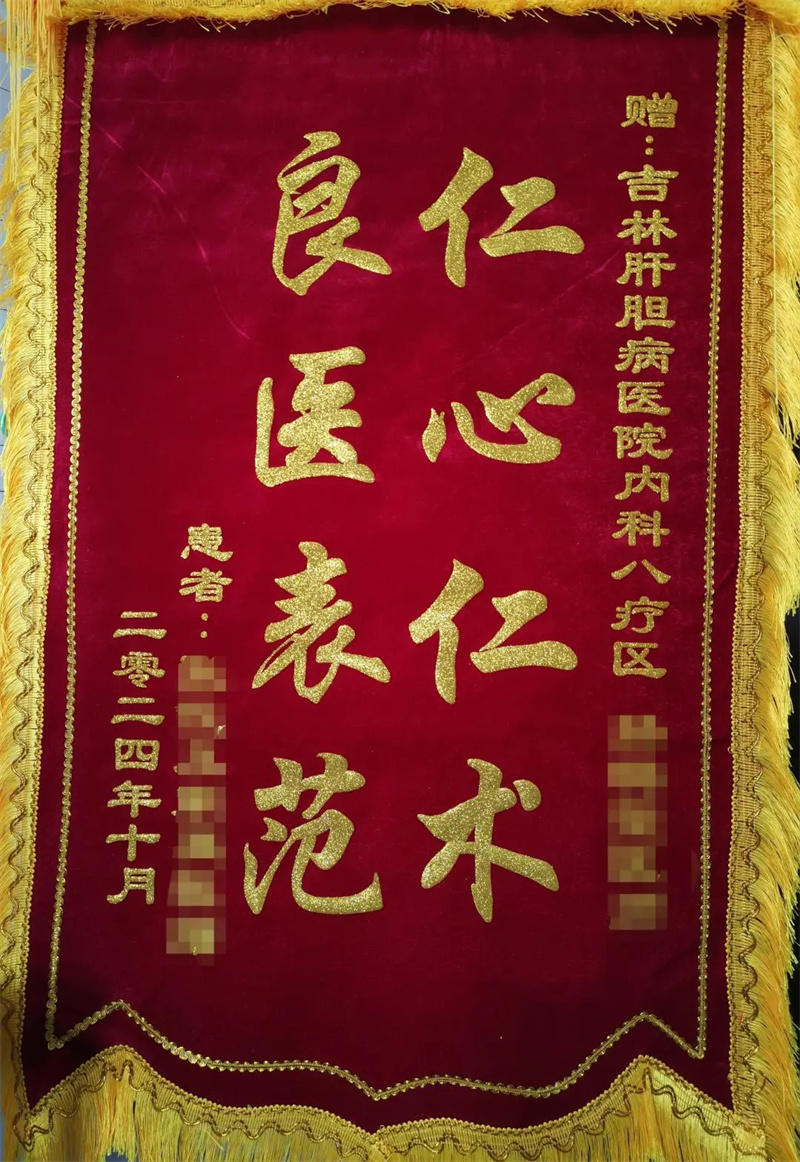 赠：吉林肝胆病医院内科八疗区
仁心仁术
良医表范
患者：
二零二四年十月